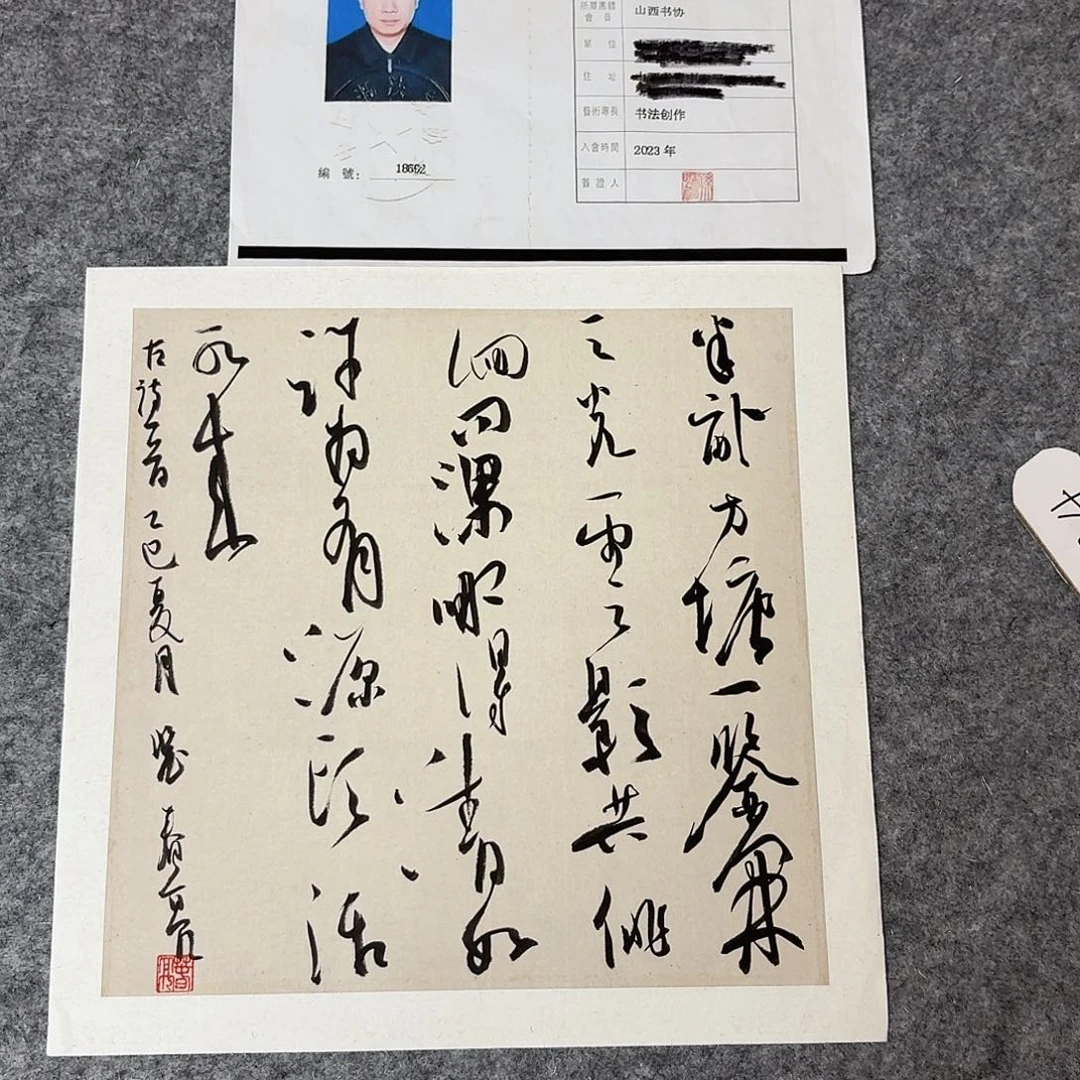 山西书协
單 位
住 址
藝術專長 书法创作
入會時間 2023 年
簽證人
編 號: 18692
半畝方塘一鑒開
天光雲影共徘
徊問渠那得清如
許為有源頭活
水來
古詩一首 乙巳夏月